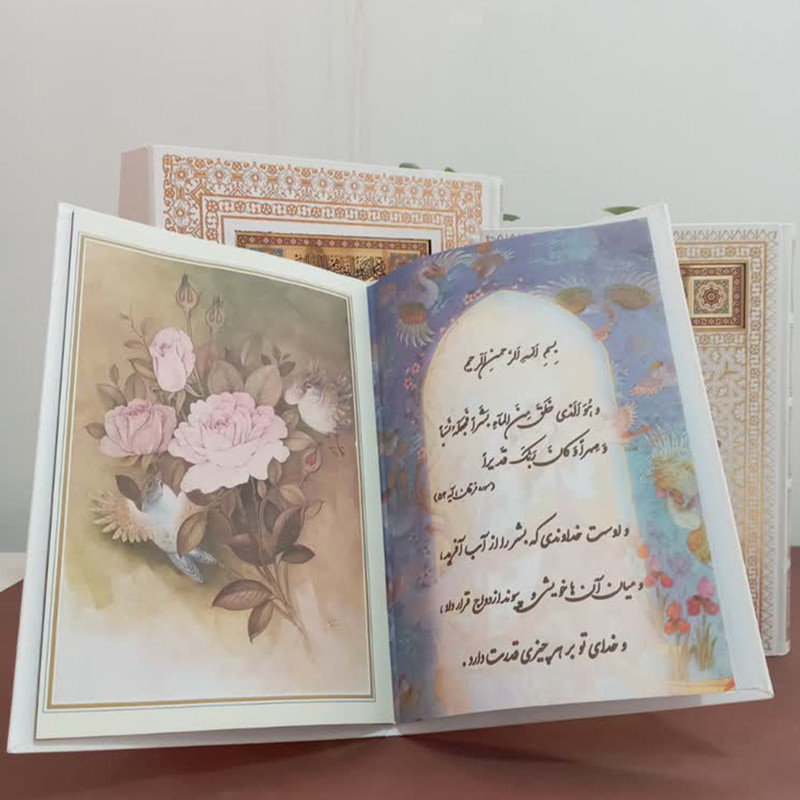 بِسْمِ اللهِ الرَّحْمنِ الرَّحیمِ
وَ هُوَ الَّذی خَلَقَ مِنَ الْماءِ بَشَراً فَجَعَلَهُ نَسَباً
وَ صِهراً وَ کانَ رَبُّکَ قَدیراً
(سوره فرقان، آیه ۵۴)
و اوست خداوندی که بشر را از آب آفرید،
و میان آن ها خویشی و پیوند ازدواج قرار داد،
و خدای تو بر هر چیزی قدرت دارد.